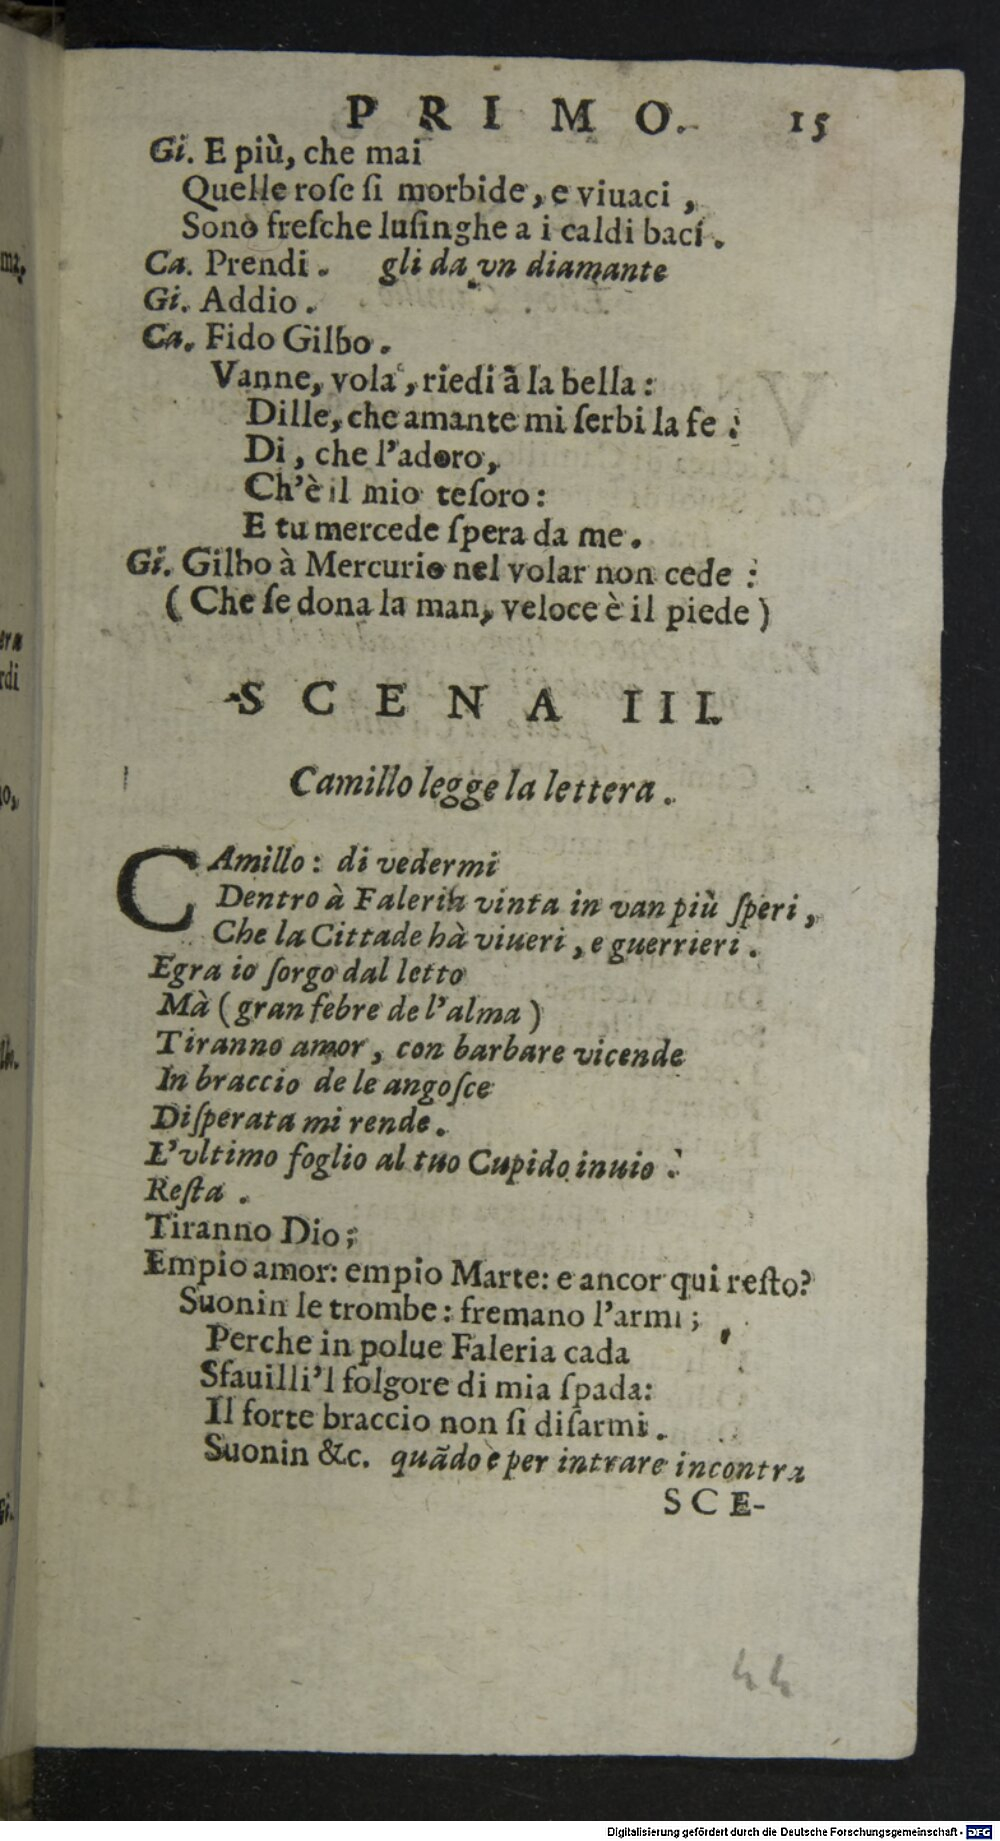 PRIMO. 15
Gi. E più, che mai
Quelle roſe ſi morbide, e viuaci,
Sono freſche luſinghe a i caldi baci.
Ca. Prendi. gli da vn diamante
Gi. Addio.
Ca. Fido Gilbo.
Vanne, vola, riedi à la bella:
Dille, che amante mi ſerbi la fe:
Di, che l'adoro,
Ch'è il mio teſoro:
E tu mercede ſpera da me.
Gi. Gilbo à Mercurio nel volar non cede:
(Che ſe dona la man, veloce è il piede)
SCENA III.
Camillo legge la lettera.
CAmillo: di vedermi
Dentro à Faleria vinta in van più ſperi,
Che la Cittade hà viueri, e guerrieri.
Egra io ſorgo dal letto
Mà (gran febre de l'alma)
Tiranno amor, con barbare vicende
In braccio de le angoſce
Diſperata mi rende.
L'vltimo foglio al tuo Cupido inuio:
Reſta.
Tiranno Dio;
Empio amor: empio Marte: e ancor qui reſto?
Suonin le trombe: fremano l'armi;
Perche in polue Faleria cada
Sfauilli'l folgore di mia ſpada:
Il forte braccio non ſi diſarmi.
Suonin &c. quãdo è per intrare incontra
SCE-
44
Digitalisierung gefördert durch die Deutsche Forschungsgemeinschaft - DFG